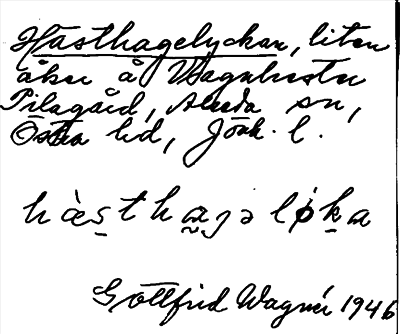 Hästhagelyckan, liten
åker å Vägnhester
Pilagård, Almda sn,
Östra hd, Jönk. l.
hàs̱tha̰jə løḵa
Gottfrid Wagnér 1946